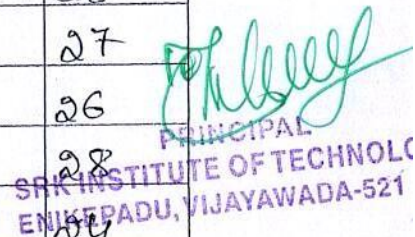 27
26
PRINCIPAL
28
SRK INSTITUTE OF TECHNOLO
ENIKEPADU, VIJAYAWADA-521